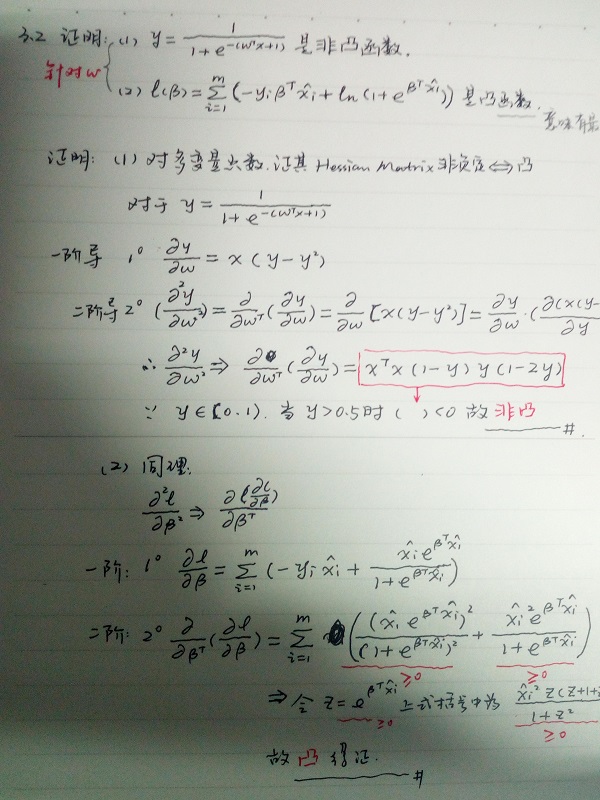 3.2 证明: (1) y = 1/(1+e^{-(w^T x+1)}) 是非凸函数.
针对w
(2) l(β) = Σ_{i=1}^{m} (-y_i β^T x̂_i + ln(1+e^{β^T x̂_i})) 是凸函数.
意味有
证明: (1) 对多变量函数.证其 Hessian Matrix 非负定 ⇔ 凸
对于 y = 1/(1+e^{-(w^T x+1)})
一阶导 1° ∂y/∂w = x(y-y²)
二阶导 2° (∂²y/∂w²) = ∂/∂w^T (∂y/∂w) = ∂/∂w [x(y-y²)] = ∂y/∂w · (∂(x(y-/∂y
∴ ∂²y/∂w² ⇒ ∂/∂w^T (∂y/∂w) = x^T x (1-y) y (1-2y)
∵ y∈[0.1). 当 y>0.5时 ( )<0 故 非凸 #.
(2) 同理:
∂²l/∂β² ⇒ ∂(∂l/∂β)/∂β^T
一阶: 1° ∂l/∂β = Σ_{i=1}^{m} (-y_i x̂_i + x̂_i e^{β^T x̂_i}/(1+e^{β^T x̂_i}))
二阶: 2° ∂/∂β^T (∂l/∂β) = Σ_{i=1}^{m} ((x̂_i e^{β^T x̂_i})²/(1+e^{β^T x̂_i})² + x̂_i² e^{β^T x̂_i}/(1+e^{β^T x̂_i}))
≥0 ≥0
⇒ 令 z = e^{β^T x̂_i} 上式括号中为 x̂_i² z(z+1+/1+z²
≥0 ≥0
故 凸 得证. #